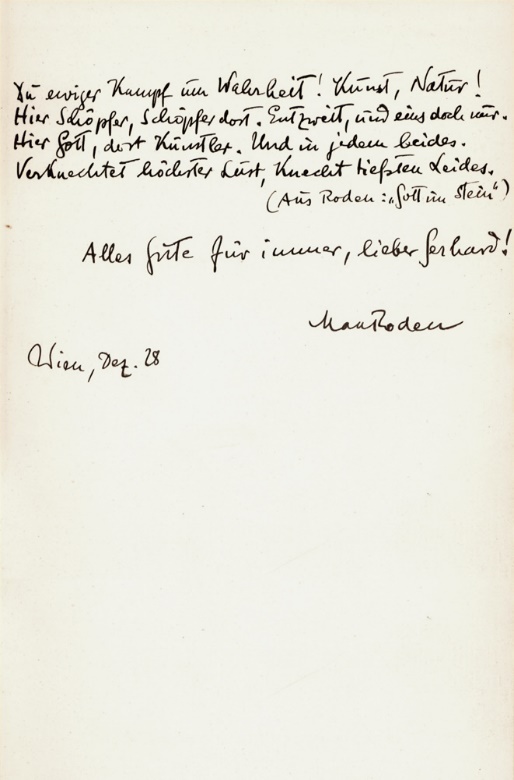 Du ewiger Kampf um Wahrheit! Kunst, Natur!
Hier Schöpfer, Schöpfer dort. Entzweit, und eins doch nur.
Hier Gott, dort Künstler. Und in jedem beides.
Verknechtet höchster Lust, Knecht tiefsten Leides.
(Aus Roden: „Gott im Stein")
Alles Gute für immer, lieber Gerhard!
Max Roden
Wien, Dez. 28